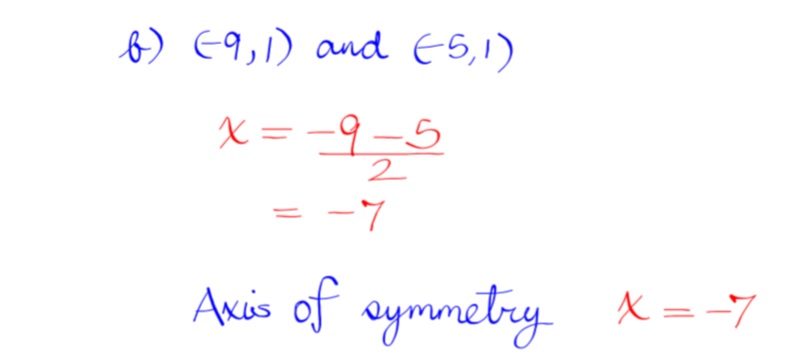 b) (-9,1) and (-5,1)
x = -9 - 5
2
= -7
Axis of symmetry x = -7